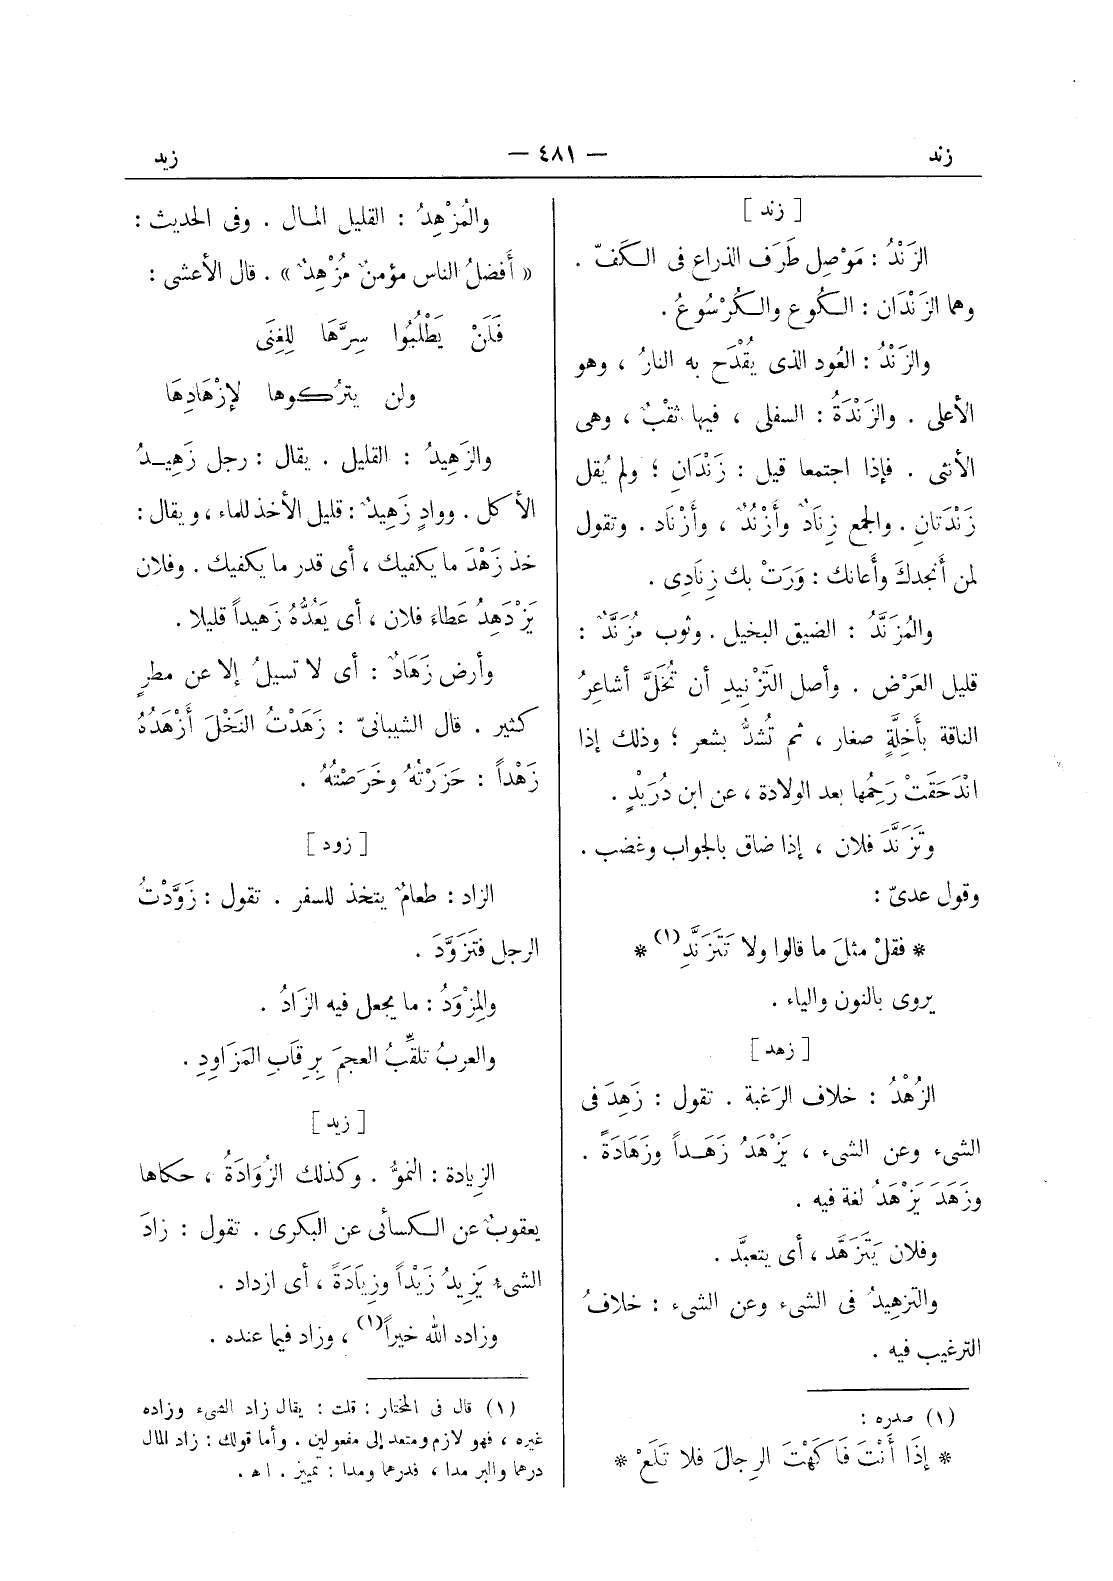 زند
— ٤٨١ —
زيد
[ زند ]
الزَنْدُ : مَوْصِل طَرَف الذراع فى الـكَفّ .
وهما الزَنْدَان : الـكُوع والـكُرْسُوعُ .
والزَنْدُ : العُود الذى يُقْدَح به النارُ ، وهو
الأعلى . والزَنْدَةُ : السفلى ، فيها ثقْبٌ ، وهى
الأنثى . فإذا اجتمعا قيل : زَنْدَانِ ؛ ولم يُقل
زَنْدَتانِ . والجمع زِنَادٌ وأَزْنُدٌ ، وأَزْنَاد . وتقول
لمن أنجدكَ وأَعانك : وَرَتْ بك زِنَادِى .
والمُزَنَّدُ : الضيق البخيل . وثوب مُزَنَّدٌ :
قليل العَرْض . وأصل التَزْنِيدِ أن تُخَلَّ أشاعِرُ
الناقة بأَخِلَّةٍ صغار ، ثم تُشدُّ بشعر ؛ وذلك إذا
انْدَحَقَتْ رَحِمُها بعد الولادة ، عن ابن دُرَيْدٍ .
وتَزَنَّدَ فلان ، إذا ضاق بالجواب وغضب .
وقول عدىّ :
* فقلْ مثلَ ما قالوا ولا تَتَزَنَّدِ (١) *
يروى بالنون والياء .
[ زهد ]
الزُهْدُ : خلاف الرَغبة . تقول : زَهِدَ فى
الشىء وعن الشىء ، يَزْهَدُ زَهَـداً وزَهَادَةً .
وزَهَدَ يَزْهَدُ لغة فيه .
وفلان يَتَزَهَّد ، أى يتعبَّد .
والتزهِيدُ فى الشىء وعن الشىء : خلافُ
الترغيب فيه .
(١) صدره :
* إذَا أَنْتَ فَا كَهْتَ الرِجالَ فلا تَلَعْ *
والمُزْهِدُ : القليل المـال . وفى الحديث :
« أَفضلُ الناس مؤمنٌ مُزْهِدٌ » . قال الأعشى :
فَلَنْ يَطْلُبُوا سِرَّهَا لِلغِنَى
ولن يترُكـوها لإزْهَادِهَا
والزَهِيدُ : القليل . يقال : رجل زَهِيـدُ
الأكل . ووادٍ زَهِيدٌ : قليل الأخذ للماء ، ويقال :
خذ زَهْدَ ما يكفيك ، أى قدر ما يكفيك . وفلان
يَزْدَهِدُ عَطاءَ فلان ، أى يَعُدُّهُ زَهيداً قليلا .
وأرض زَهَادٌ : أى لا تسيلُ إلا عن مطرٍ
كثير . قال الشيبانىّ : زَهَدْتُ النَخْلَ أَزْهَدُهُ
زَهْداً : حَزَرْتُهُ وخَرَصْتُهُ .
[ زود ]
الزاد : طعامٌ يتخذ للسفر . تقول : زَوَّدْتُ
الرجل فتَزَوَّدَ .
والمِزْوَدُ : ما يجعل فيه الزَادُ .
والعربُ تلقِّبُ العجمَ بِرِقَابِ المَزَاوِدِ .
[ زيد ]
الزِيادة : النموُّ . وكذلك الزُوَادَةُ ، حكاها
يعقوبٌ عن الـكسائى عن البكرى . تقول : زادَ
الشىءُ يَزِيدُ زَيْداً وزِيَادَةً ، أى ازداد .
وزاده الله خيراً (١) ، وزاد فيما عنده .
(١) قال فى المختار : قلت : يقال زاد الشىء وزاده
غيره ، فهو لازم ومتعد إلى مفعولين . وأما قولك : زاد المال
درهما والبر مدا ، فدرهما ومدا : تمييز . ا ه .